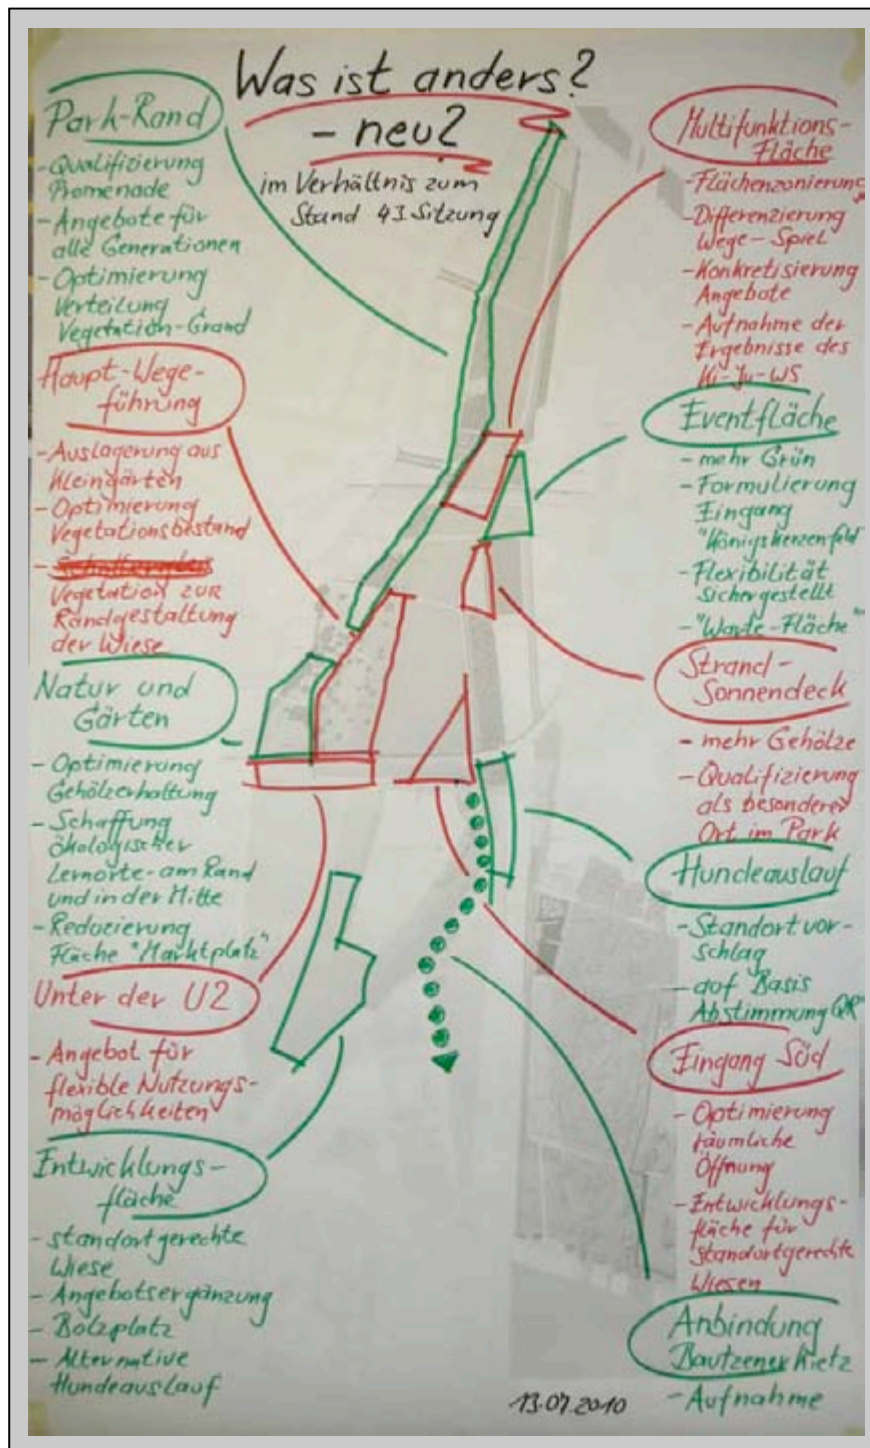 Was ist anders?
- neu?
im Verhältnis zum
Stand 43. Sitzung
Park-Rand
- Qualifizierung
Promenade
- Angebote für
alle Generationen
- Optimierung
Verteilung
Vegetation-Grand
Haupt-Wege-
führung
- Auslagerung aus
Kleingärten
- Optimierung
Vegetationsbestand
-
Vegetation zur
Randgestaltung
der Wiese
Natur und
Gärten
- Optimierung
Gehölzerhaltung
- Schaffung
ökologischer
Lernorte-am Rand
und in der Mitte
- Reduzierung
Fläche "Marktplatz"
Unter der U2
- Angebot für
flexible Nutzungs-
möglichkeiten
Entwicklungs-
fläche
- standortgerechte
Wiese
- Angebotsergänzung
- Bolzplatz
- Alternative
Hundeauslauf
Multifunktions-
Fläche
- Flächenzonierung
- Differenzierung
Wege-Spiel
- Konkretisierung
Angebote
- Aufnahme der
Ergebnisse des
Ki-Ju-WS
Eventfläche
- mehr Grün
- Formulierung
Eingang
"Königskerzenfeld"
- Flexibilität
sichergestellt
- "Warte-Fläche"
Strand-
Sonnendeck
- mehr Gehölze
- Qualifizierung
als besonderer
Ort im Park
Hundeauslauf
- Standortvor-
schlag
- auf Basis
Abstimmung QR
Eingang Süd
- Optimierung
räumliche
Öffnung
- Entwicklungs-
fläche für
standortgerechte
Wiesen
Anbindung
Bautzener Kietz
- Aufnahme
13.07.2010